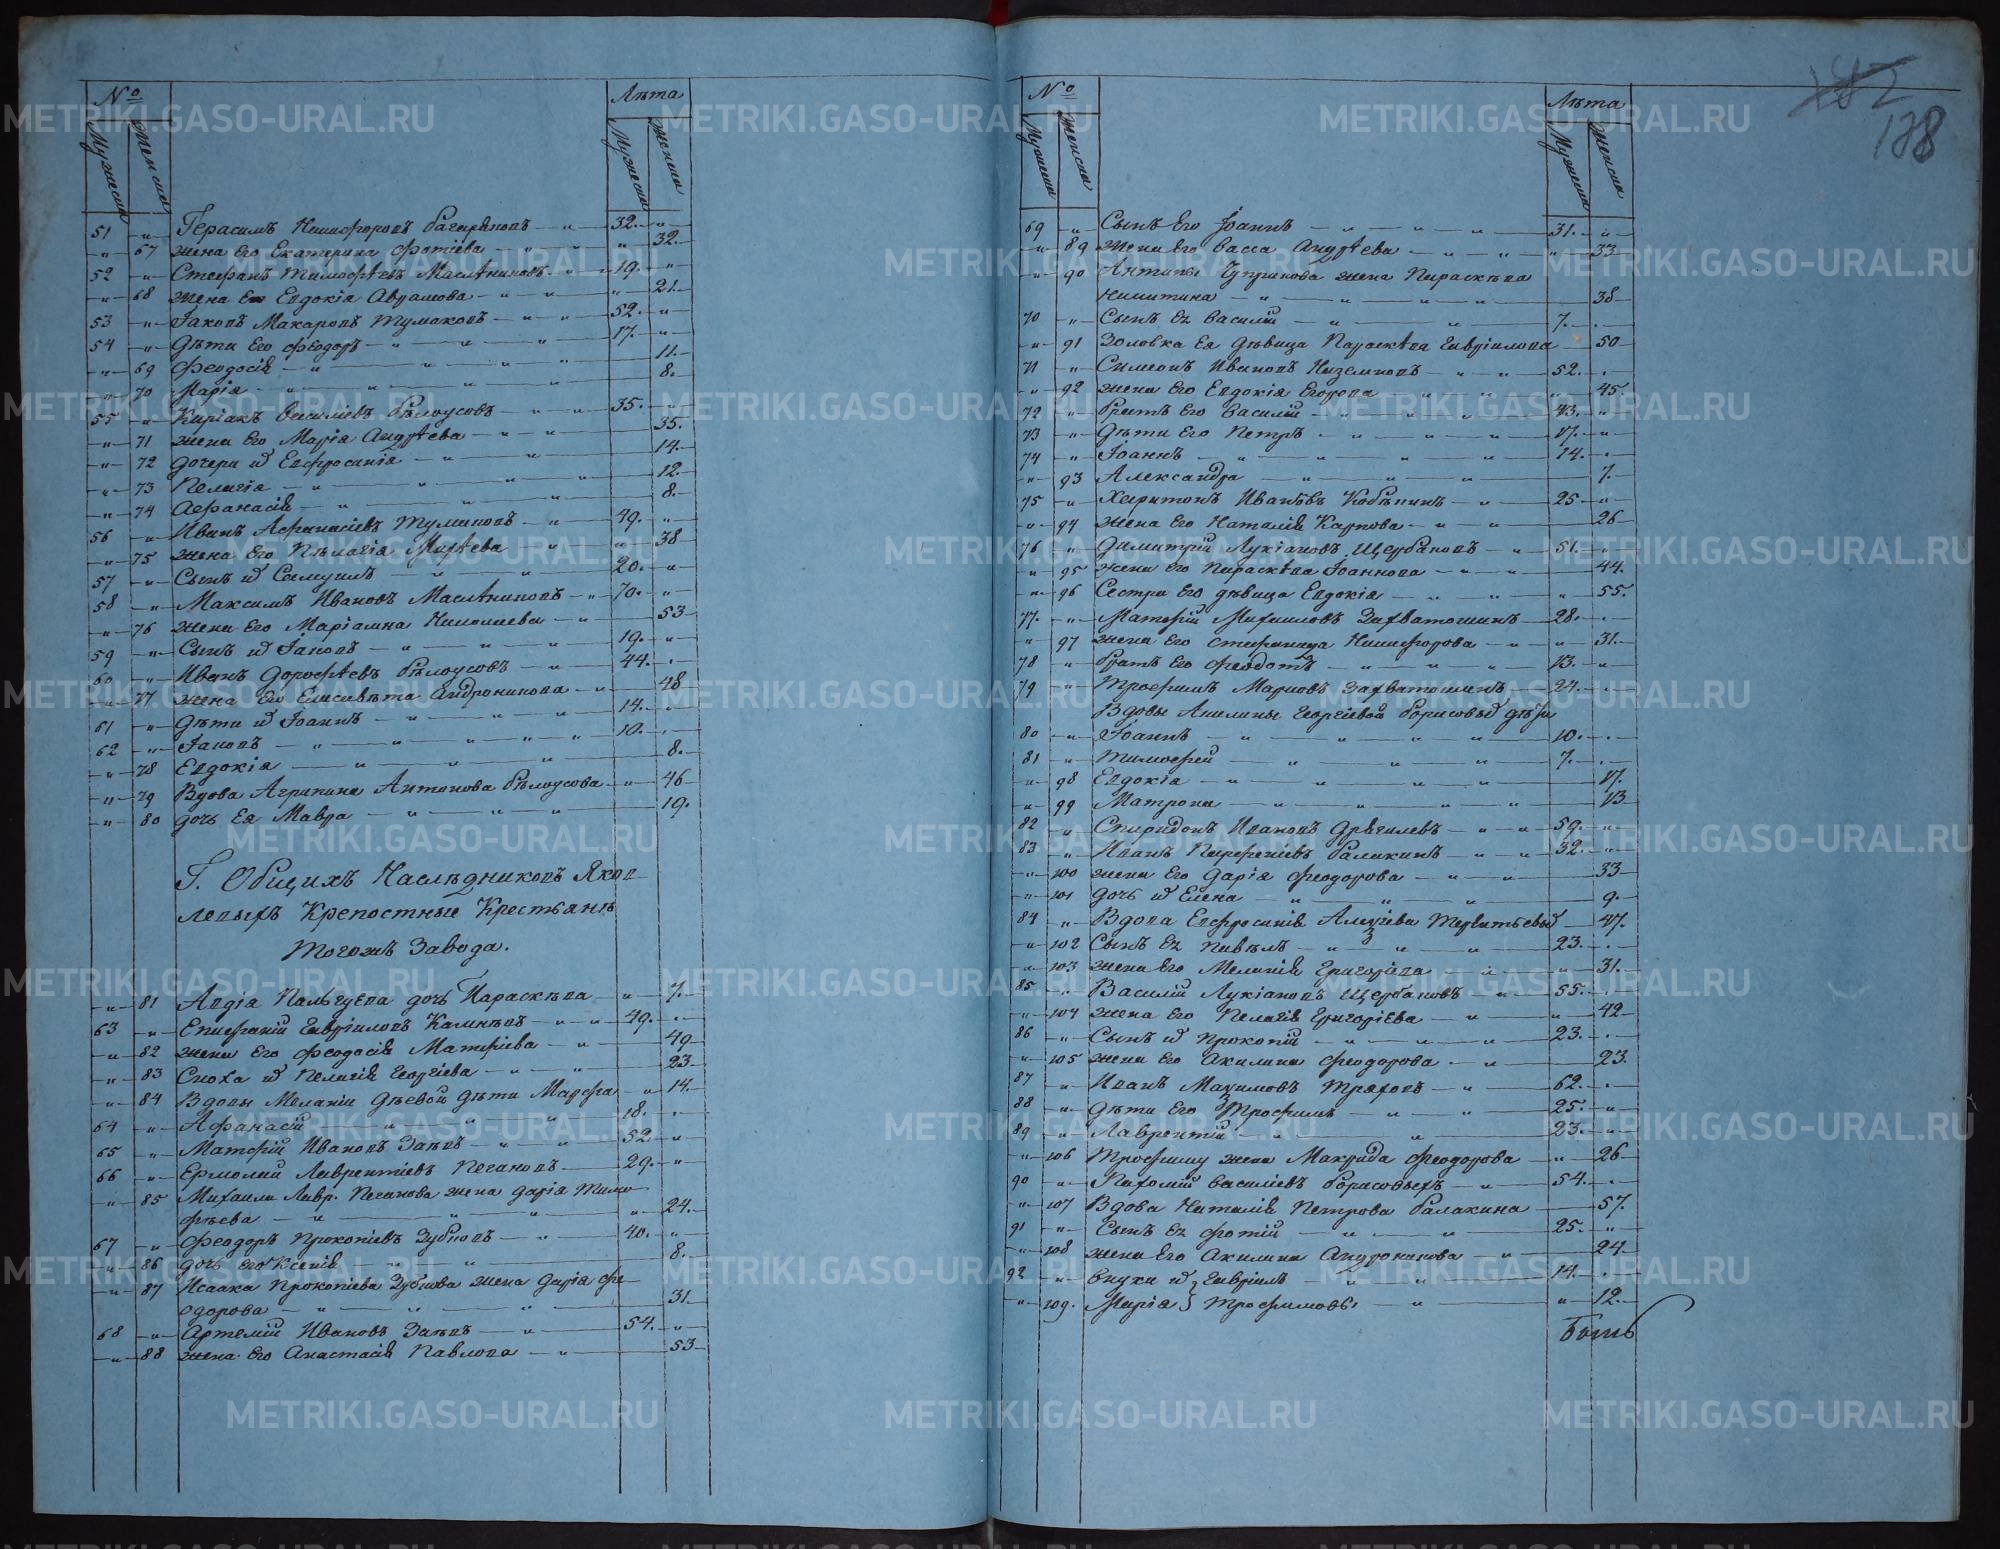 № Лѣта
Мужеска Женска Мужеска Женска
51 „ Герасимъ Никифоровъ 32. „
„ 67 жена Его Екатерина Фотіева „ 32.
52 „ Стефанъ Тимофѣевъ Маслѣниковъ 19. „
„ 68 жена Его Евдокія Аврамова „ 21.
53 „ Іаковъ Макаровъ Тумаковъ 52. „
54 „ Дѣти Его Феодоръ 17. „
„ 69 Феодосія 11.
„ 70 Марія 8.
55 „ Киріакъ Васильевъ Бѣлоусовъ 35. „
„ 71 жена Его Марія Андрѣева 35.
„ 72 дочери и Евфросинія 14.
„ 73 Пелагія 12.
„ 74 Афанасія 8.
56 „ Иванъ Афанасіевъ Тумаковъ 49. „
„ 75 жена Его Пелагія „ 38
57 „ Сынъ и Самуилъ 20. „
58 „ Максимъ Ивановъ Маслѣниковъ 70. „
„ 76 жена Его Маріамна Николаева 53
59 „ Сынъ и Іаковъ 19. „
60 „ Иванъ Дорофѣевъ Бѣлоусовъ 44. „
„ 77 жена Его Елисавѣта Андроникова 48
61 „ Дѣти и Іоаннъ 14. „
62 „ Іаковъ 10. „
„ 78 Евдокія 8.
„ 79 Вдова Агрипина Антонова Бѣлоусова „ 46
„ 80 дочь Ея Мавра 19.
Г. Общихъ Наслѣдниковъ Яков-
левыхъ Крепостные Крестьянѣ
Тогожъ Завода.
„ 81 дочь Параскѣва „ 7.
63 „ Епифаній Гавріиловъ 49. „
„ 82 жена Его Феодосія Матфіева 49
„ 83 Сноха и Пелагія Георгіева 23
„ 84 Вдовы Меланіи дѣти Марфа „ 14.
64 „ Афанасій 18. „
65 „ Матфій Ивановъ Заевъ 52 „
66 „ Ермолай Лаврентіевъ Пегановъ 29. „
„ 85 Михаила Лавр. Пеганова жена Дарія Тимо-
фѣева „ 24.
67 „ Феодоръ Прокопіевъ Зубковъ 40. „
„ 86 дочь Его Ксенія 8.
„ 87 Исаака Прокопіева Зубкова жена Дарія Фе-
одорова 31.
68 „ Артемій Ивановъ Заевъ 54. „
„ 88 жена Его Анастасія Павлова 53
182
188
№ Лѣта
Мужеска Женска Мужеска Женска
69 „ Сынъ Его Іоаннъ 31. „
„ 89 жена Его Васса Андрѣева „ 33
„ 90 Антипы жена Параскѣва
Никитина 38
70 „ Сынъ Ея Василій 7. „
„ 91 Золовка Ея дѣвица Параскѣва Гавріилова 50
71 „ Симеонъ Ивановъ 52. „
„ 92 жена Его Евдокія Егорова „ 45.
72 „ братъ Его Василій 43. „
73 „ Дѣти Его Петръ 17. „
74 „ Іоаннъ 14. „
„ 93 Александра 7.
75 „ Харитонъ Ивановъ 25 „
„ 94 жена Его Наталія Карпова 26
76 „ Димитрій Лукіановъ Щербаковъ 51. „
„ 95 жена Его Параскѣва Іоаннова 44.
„ 96 Сестра Его дѣвица Евдокія „ 55.
77. „ Матфій Михаиловъ Захватошинъ 28. „
„ 97 жена Его Стефанида Никифорова „ 31.
78 „ братъ Его Феодотъ 13. „
79 „ Трофимъ Марковъ Захватошинъ 24. „
Вдовы Акилины Георгіевой Борисовыхъ дѣти
80 „ Іоаннъ 10. „
81 „ Тимофей 7. „
„ 98 Евдокія 17.
„ 99 Матрона 13
82 „ Спиридонъ Ивановъ 59. „
83 „ Иванъ Парфеніевъ Балакинъ 32. „
„ 100 жена Его Дарія Феодорова 33
„ 101 дочь и Елена 9.
84 „ Вдова Евфросинія 47.
„ 102 Сынъ Ея Павелъ 23. „
„ 103 жена Его Меланія Григоріева „ 31.
85 „ Василій Лукіановъ Щербаковъ 55. „
„ 104 жена Его Пелагія Григоріева „ 42
86 „ Сынъ и Прокопій 23. „
„ 105 жена Его Акилина Феодорова 23.
87 „ Иванъ Маҙимовъ 62. „
88 „ Дѣти Его Трофимъ 25. „
89 „ Лаврентій 23. „
„ 106 Трофиму жена Макрида Феодорова „ 26
90 „ Пахомій Василіевъ Борасовыхъ 54. „
„ 107 Вдова Наталія Петрова Балакина 57.
91 „ Сынъ Ея Фотій 25. „
„ 108 жена Его Акилина Андроникова 24
92 „ Внуки и Гавріилъ 14. „
„ 109. Марія } Трофимовы „ 12.